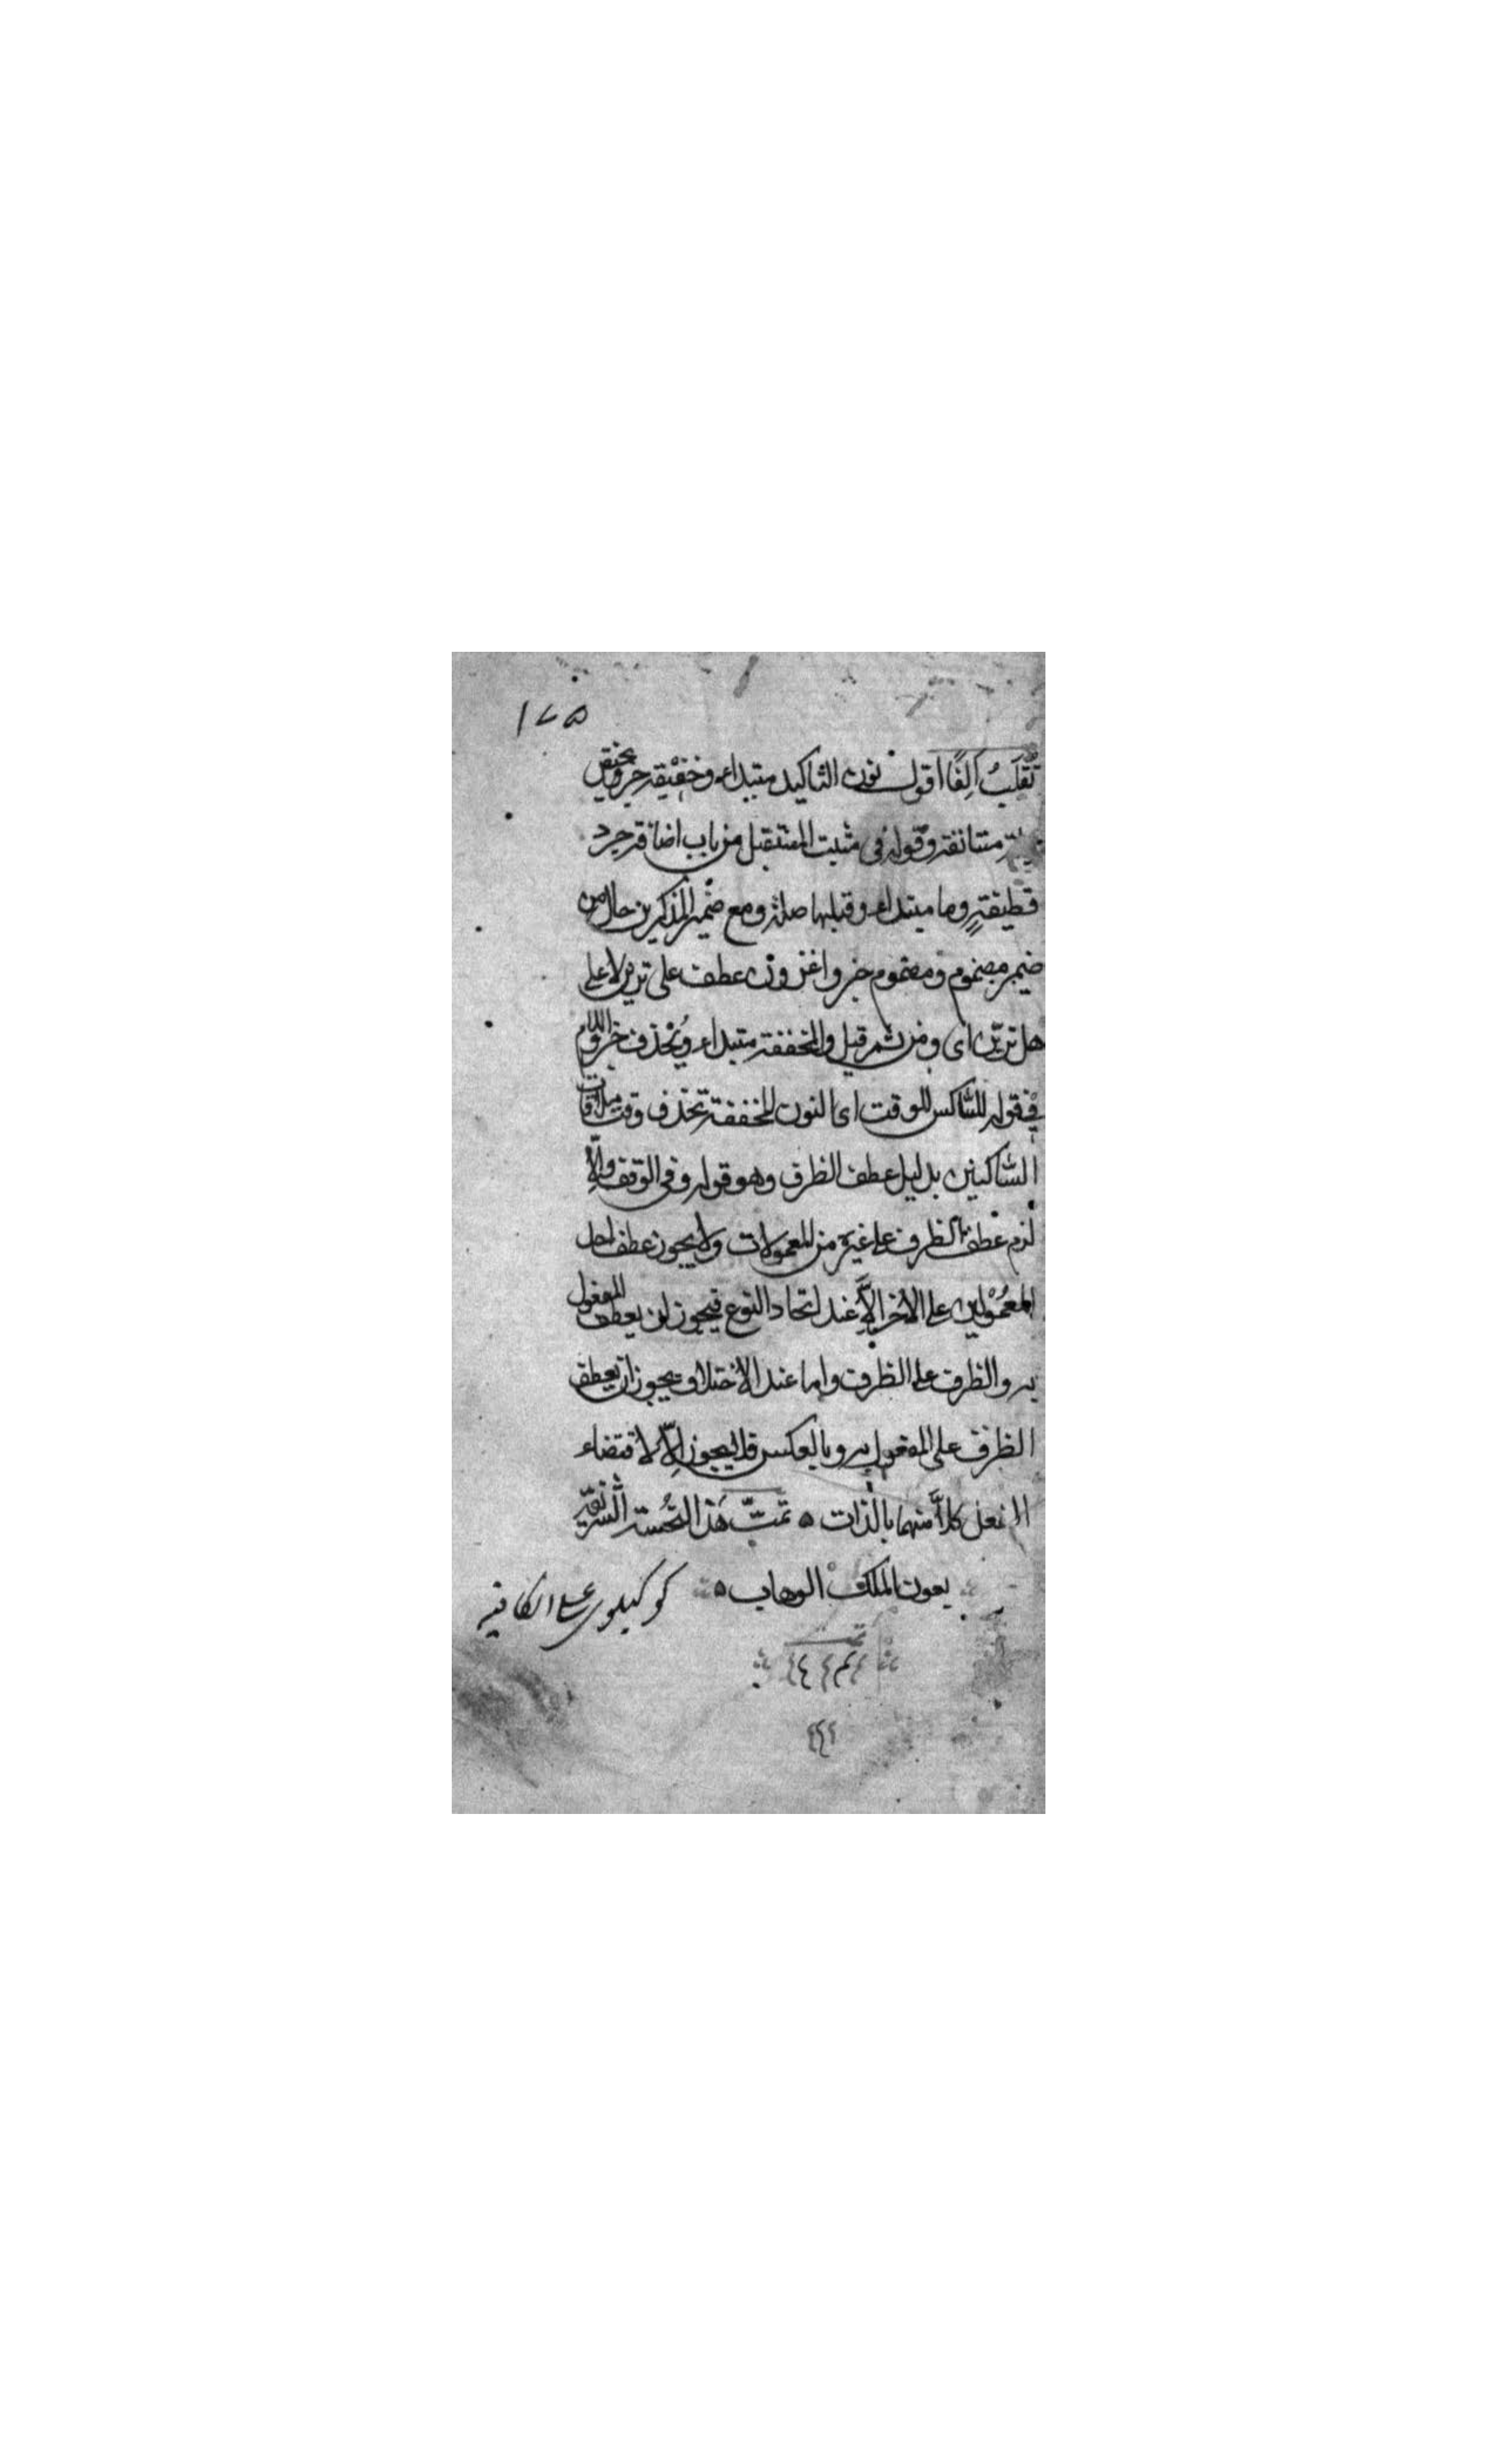 ١٧٥
تُقلَبُ اَلِفًا اقول نون التاكيد مبتداء وخفيفة خبر ويختص
متانفة وقوله فى مثبت المستقبل من باب اضافة جرد
قطيفةٍ وما مبتداء وقبلها صلة ومع ضمير المذكرين حال من
ضمير مضموم ومضموم خبر واغزون عطف على ترين لا على
هل ترينّ اى ومن ثم قيل والمخففة مبتداء ويُحْذف خبر واللام
فى قوله للساكن للوقت اى النون المخففة تحذف وقت ملاقات
الساكنين بدليل عطف الظرف وهو قوله وفى الوقف والّا
لزم عطف الظرف على غيره من المعمولات ولا يجوز عطف احد
المعمُوْلين على الاخر الَّا عند اتحاد النوع فيجوز ان يعطف المفعول
به والظرف على الظرف واما عند الاختلاف يجوز ان يعطف
الظرف على المفعول به وبالعكس فلا يجوز الّا لاقتضاء
الفعل كلاًّ منهما بالذات ه تمتّ هَذ النُّسخة الشَّريفة
بعون الملك الوهاب ه
كوكيلوى على الكافيه
تم